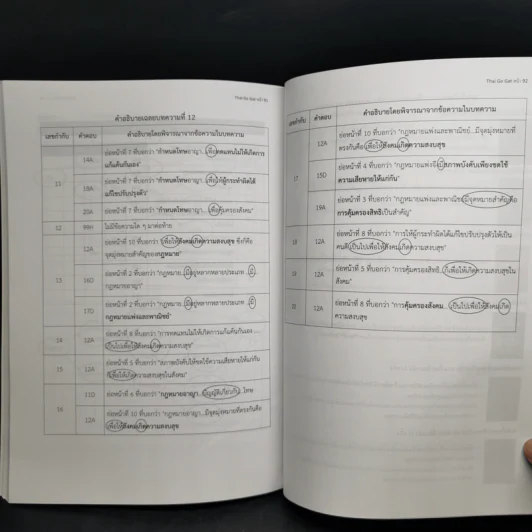 Thai Go Gat หน้า 91
คำอธิบายเฉลยบทความที่ 12
เลขกำกับ คำตอบ คำอธิบายโดยพิจารณาจากข้อความในบทความ
11 14A ย่อหน้าที่ 7 ที่บอกว่า "กำหนดโทษอาญา...เพื่อทดแทนไม่ให้เกิดการ
แก้แค้นกันเอง"
18A ย่อหน้าที่ 7 ที่บอกว่า "กำหนดโทษอาญา...เพื่อให้ผู้กระทำผิดได้
แก้ไขปรับปรุงตัว"
20A ย่อหน้าที่ 7 ที่บอกว่า "กำหนดโทษอาญา...เพื่อคุ้มครองสังคม"
12 99H ไม่มีข้อความใด ๆ มาต่อท้าย
13 12A ย่อหน้าที่ 10 ที่บอกว่า "เพื่อให้สังคมเกิดความสงบสุข ซึ่งก็คือ
จุดมุ่งหมายสำคัญของกฎหมาย"
16D ย่อหน้าที่ 2 ที่บอกว่า "กฎหมาย...มีอยู่หลากหลายประเภท...มี
กฎหมายอาญา"
17D ย่อหน้าที่ 2 ที่บอกว่า "กฎหมาย...มีอยู่หลากหลายประเภท...มี
กฎหมายแพ่งและพาณิชย์"
14 12A ย่อหน้าที่ 8 ที่บอกว่า "การทดแทนไม่ให้เกิดการแก้แค้นกันเอง...
เป็นไปเพื่อให้สังคมเกิดความสงบสุข"
15 12A ย่อหน้าที่ 5 ที่บอกว่า "สภาพบังคับให้ชดใช้ความเสียหายให้แก่กัน
ก็เพื่อให้เกิดความสงบสุขในสังคม"
16 11D ย่อหน้าที่ 6 ที่บอกว่า "กฎหมายอาญา...บัญญัติเกี่ยวกับ...โทษ
12A ย่อหน้าที่ 10 ที่บอกว่า "กฎหมายอาญา...มีจุดมุ่งหมายที่ตรงกันคือ
เพื่อให้สังคมเกิดความสงบสุข
Thai Go Gat หน้า 92
เลขกำกับ คำตอบ คำอธิบายโดยพิจารณาจากข้อความในบทความ
17 12A ย่อหน้าที่ 10 ที่บอกว่า "กฎหมายแพ่งและพาณิชย์...มีจุดมุ่งหมายที่
ตรงกันคือเพื่อให้สังคมเกิดความสงบสุข
15D ย่อหน้าที่ 4 ที่บอกว่า "กฎหมายแพ่งจึงมีสภาพบังคับเพียงชดใช้
ความเสียหายให้แก่กัน"
19A ย่อหน้าที่ 3 ที่บอกว่า "กฎหมายแพ่งและพาณิชย์มีจุดหมายสำคัญคือ
การคุ้มครองสิทธิเป็นสำคัญ"
18 12A ย่อหน้าที่ 8 ที่บอกว่า "การให้ผู้กระทำผิดได้แก้ไขปรับปรุงตัวให้เป็น
คนดีเป็นไปเพื่อให้สังคมเกิดความสงบสุข"
19 12A ย่อหน้าที่ 5 ที่บอกว่า "การคุ้มครองสิทธิ...ก็เพื่อให้เกิดความสงบสุขใน
สังคม"
12A ย่อหน้าที่ 8 ที่บอกว่า "การคุ้มครองสังคม...เป็นไปเพื่อให้สังคมเกิด
ความสงบสุข